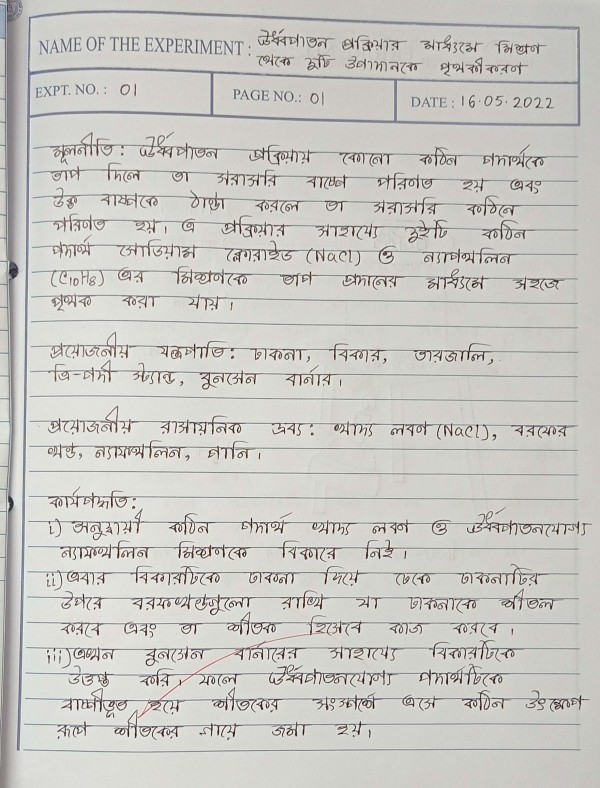 NAME OF THE EXPERIMENT : ঊর্ধ্বপাতন প্রক্রিয়ার মাধ্যমে মিশ্রণ
থেকে দুটি উপাদানকে পৃথকীকরণ
EXPT. NO. : 01 PAGE NO.: 01 DATE : 16.05.2022
মূলনীতি : ঊর্ধ্বপাতন প্রক্রিয়ায় কোনো কঠিন পদার্থকে
তাপ দিলে তা সরাসরি বাষ্পে পরিণত হয় এবং
উক্ত বাষ্পকে ঠান্ডা করলে তা সরাসরি কঠিনে
পরিণত হয়। এ প্রক্রিয়ার সাহায্যে দুইটি কঠিন
পদার্থ সোডিয়াম ক্লোরাইড (NaCl) ও ন্যাপথলিন
(C10H8) এর মিশ্রণকে তাপ প্রদানের মাধ্যমে সহজে
পৃথক করা যায়।
প্রয়োজনীয় যন্ত্রপাতি : ঢাকনা, বিকার, তারজালি,
ত্রি-পদী স্ট্যান্ড, বুনসেন বার্নার।
প্রয়োজনীয় রাসায়নিক দ্রব্য : খাদ্য লবণ (NaCl), বরফের
খন্ড, ন্যাফথলিন, পানি।
কার্যপদ্ধতি :
i) অনুদ্বায়ী কঠিন পদার্থ খাদ্য লবণ ও ঊর্ধ্বপাতনযোগ্য
ন্যাফথলিন মিশ্রণকে বিকারে নিই।
ii) এবার বিকারটিকে ঢাকনা দিয়ে ঢেকে ঢাকনাটির
উপরে বরফখন্ডগুলো রাখি যা ঢাকনাকে শীতল
করবে এবং তা শীতক হিসেবে কাজ করবে।
iii) এখন বুনসেন বার্নারের সাহায্যে বিকারটিকে
উত্তপ্ত করি। ফলে ঊর্ধ্বপাতনযোগ্য পদার্থটিকে
বাষ্পীভূত হয়ে শীতকের সংস্পর্শে এসে কঠিন উৎক্ষেপ
রূপে শীতকের গায়ে জমা হয়।